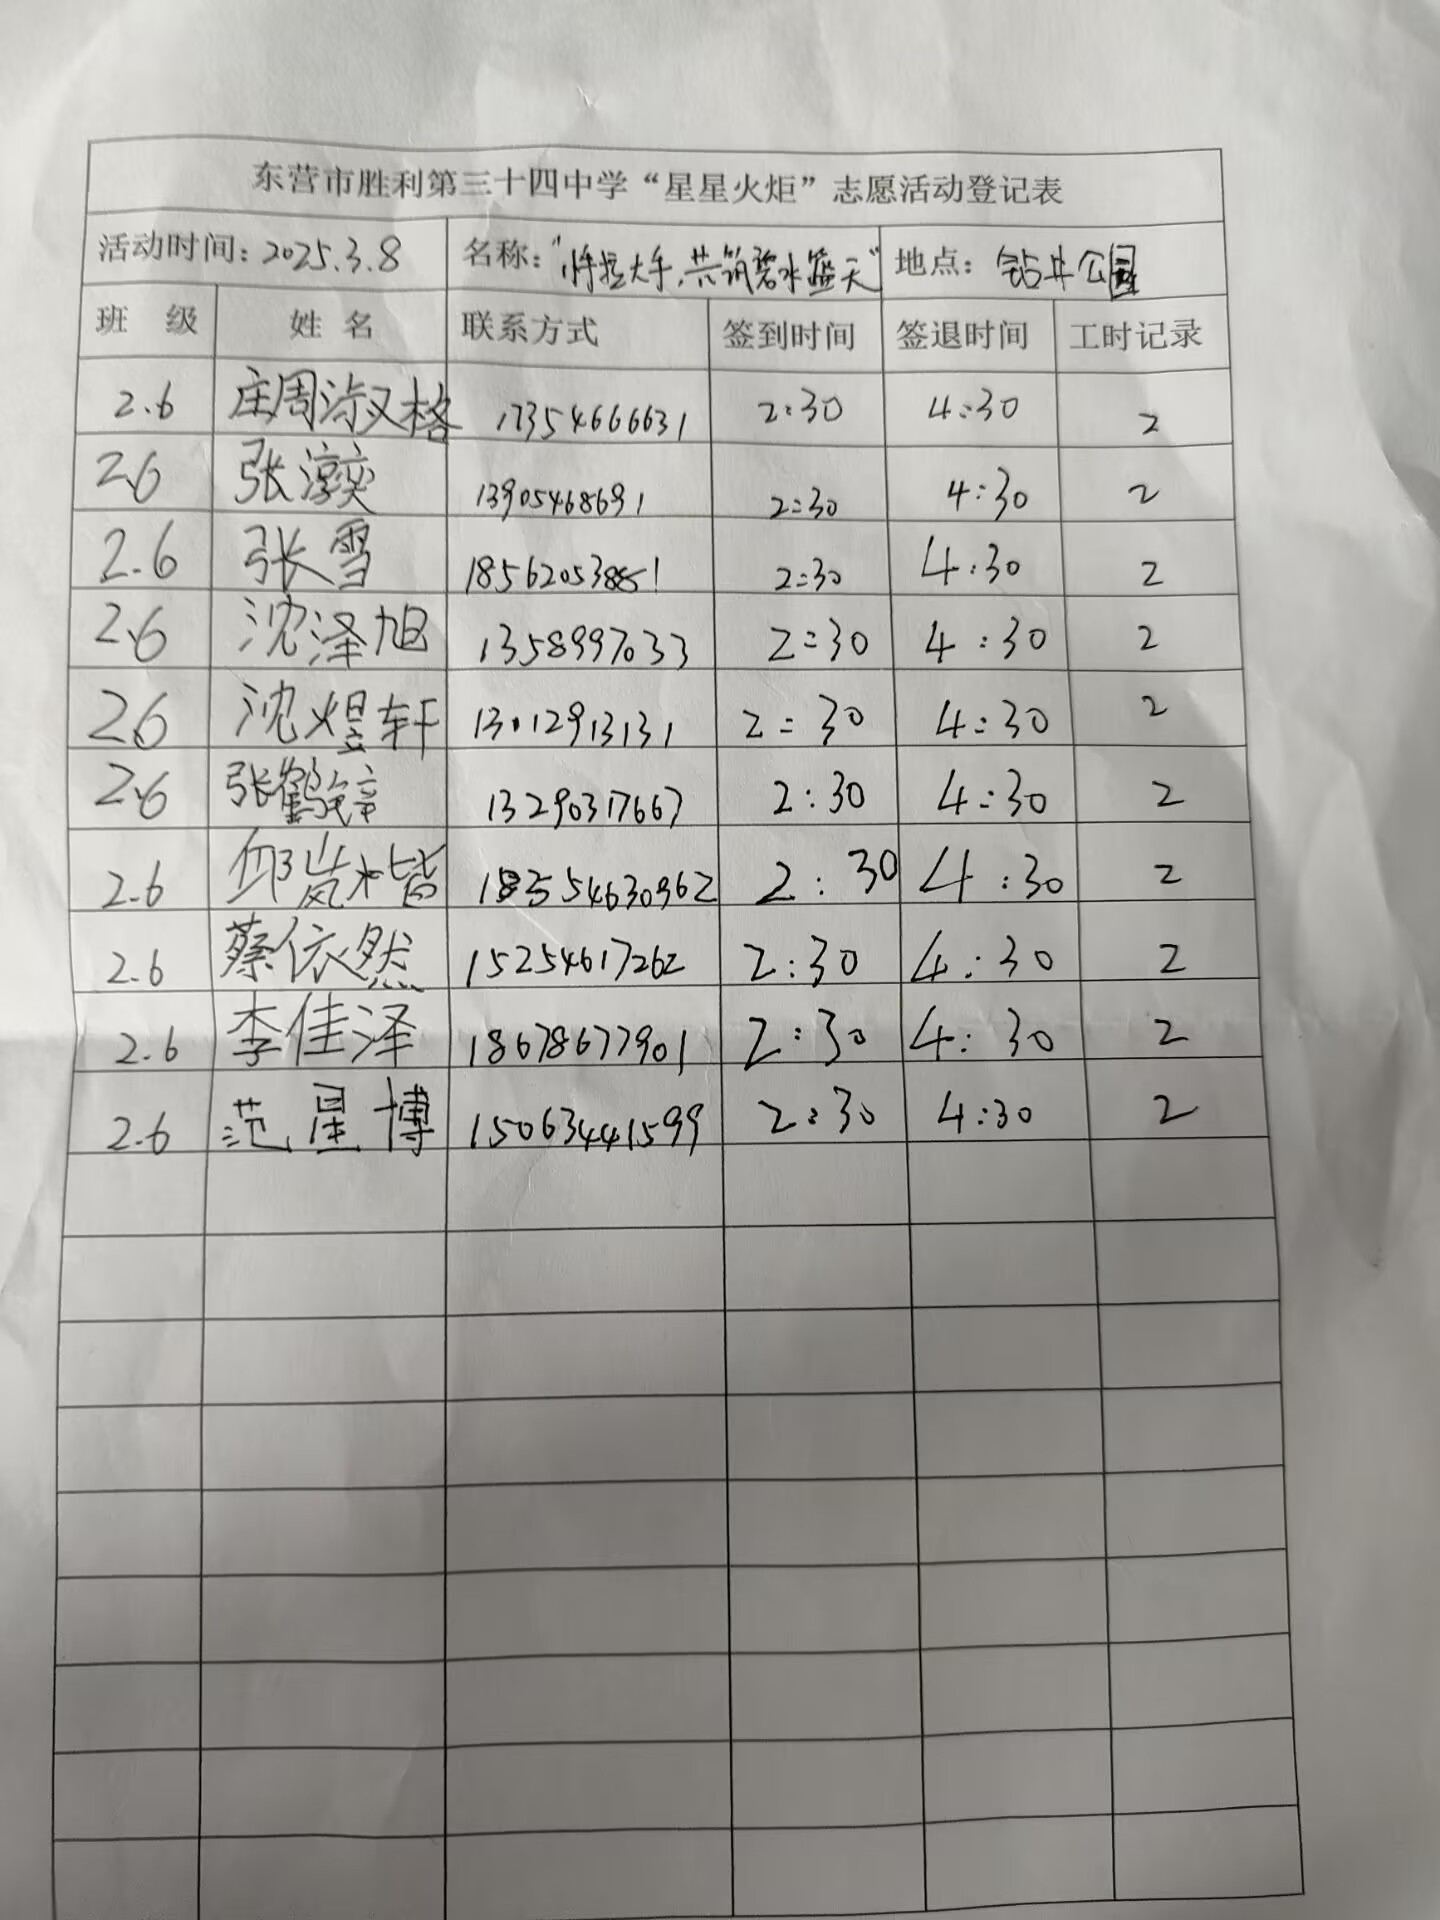 东营市胜利第三十四中学“星星火炬”志愿活动登记表
活动时间：2025.3.8 名称：“ 大手，共筑碧水蓝天” 地点：钻井公园
班 级 姓 名 联系方式 签到时间 签退时间 工时记录
2.6 庄周 格 17354666631 2:30 4:30 2
26 张 奕 13905468691 2:30 4:30 2
2.6 张雪 1856205 2:30 4:30 2
2.6 沈泽旭 1358997033 2:30 4:30 2
26 沈煜轩 13012913131 2:30 4:30 2
2.6 张鹤 13290317667 2:30 4:30 2
2.6 邱岚楷 18354630962 2:30 4:30 2
2.6 蔡依然 15254617262 2:30 4:30 2
2.6 李佳泽 18678677901 2:30 4:30 2
2.6 范星博 15063441599 2:30 4:30 2